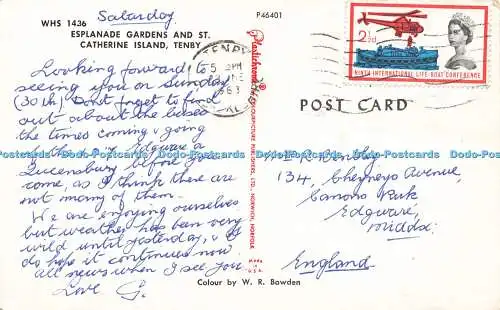 WHS 1436
Saturday
P46401
ESPLANADE GARDENS AND ST.
CATHERINE ISLAND, TENBY
TENBY
5 PM
NE
Looking forward to
seeing you on Sunday
(30th). Don't forget to find
out about the buses
the times coming & going
Edgware &
Queensbury before you
come, as I think there are
not many of them.
We are enjoying ourselves
but weather has been very
wild until yesterday, &
do hope it continues now
all news when I see you.
Love G.
2½d
NINTH INTERNATIONAL LIFE-BOAT CONFERENCE
POST CARD
134, Cheyneys Avenue,
Canons Park
Edgware,
Middx.
England
Plastichrome
COLOURPICTURE PUBLISHERS, LTD. NORWICH, NORFOLK
MADE IN U.S.A.
Colour by W. R. Bowden
Postcards-World Dodo Postcards-World Dodo Postcards-World Dodo Postcards-World Dodo